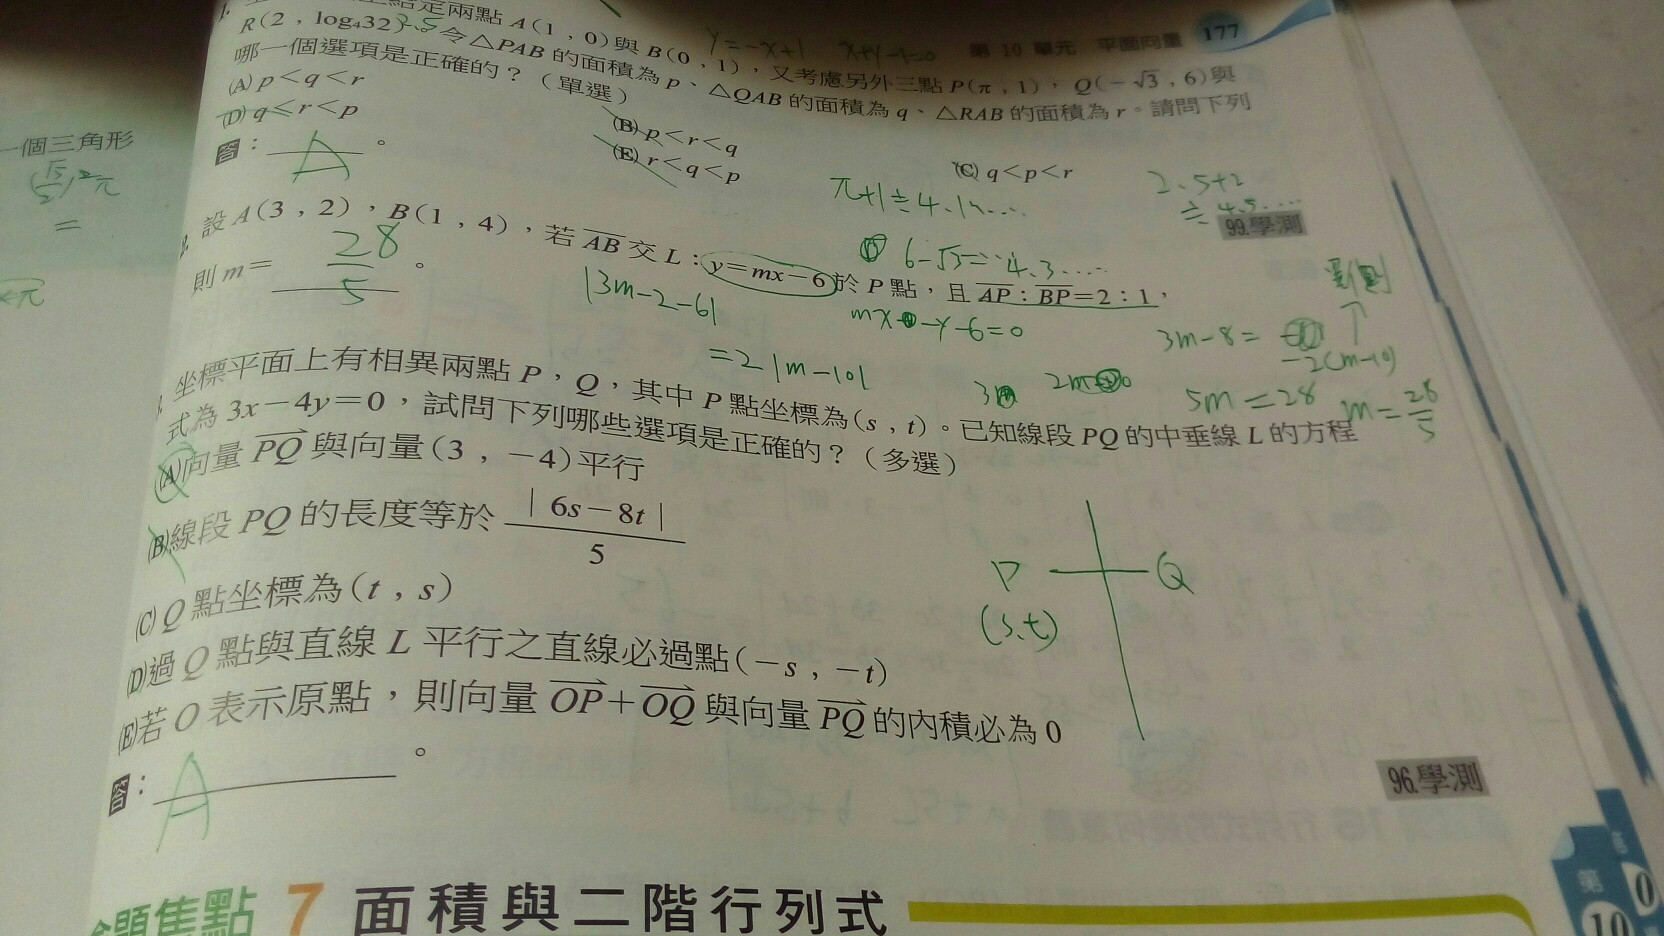 第 10 單元 平面向量 177
給定兩點 A(1,0)與B(0,1),又考慮另外三點P(π,1),Q(-√3,6)與
R(2,log₄32)。令△PAB的面積為p、△QAB的面積為q、△RAB的面積為r。請問下列
哪一個選項是正確的?(單選)
y=-x+1 x+y-1=0
2.5
(A) p<q<r
(B) p<r<q
(C) q<p<r
(D) q<r<p
(E) r<q<p
答: A 。
π+1≒4.1
2.5+2
≒4.5....
6-√3=4.3.....
99.學測
設A(3,2),B(1,4),若AB交L:y=mx-6於P點,且AP:BP=2:1,
則m= 28/5 。
|3m-2-6|
=2|m-10|
mx-y-6=0
3m-8=
-2(m-10)
5m=28 m=28/5
坐標平面上有相異兩點P,Q,其中P點坐標為(s,t)。已知線段PQ的中垂線L的方程
式為3x-4y=0,試問下列哪些選項是正確的?(多選)
(A)向量PQ與向量(3,-4)平行
(B)線段PQ的長度等於|6s-8t|/5
(C)Q點坐標為(t,s)
(D)過Q點與直線L平行之直線必過點(-s,-t)
(E)若O表示原點,則向量OP+OQ與向量PQ的內積必為0
答: A 。
P Q
(s,t)
96.學測
焦點 7 面積與二階行列式
一個三角形
=
第
10